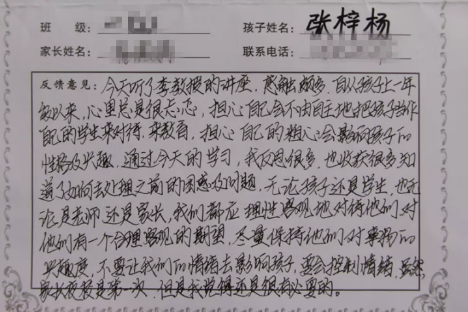 班 级：
孩子姓名：张梓杨
家长姓名：
联系电话：
反馈意见：今天听了李教授的讲座，感触颇多，自从孩子上一年
级以来，心里总是很忐忑，担心自己会不由自主地把孩子当作
自己的学生来对待，来教育，担心自己的粗心会影响孩子的
性格及兴趣，通过今天的学习，我反思很多，也收获很多知
道了如何去处理之前的困惑及问题，无论孩子还是学生，也无
论是老师还是家长，我们都应理性客观地对待他们，对
他们有一个合理客观的期望，尽量保持他们对事物的
兴趣度，不要让我们的情绪去影响孩子，要会控制情绪，虽然
家长夜校是第一次，但是我觉得还是很有必要的。